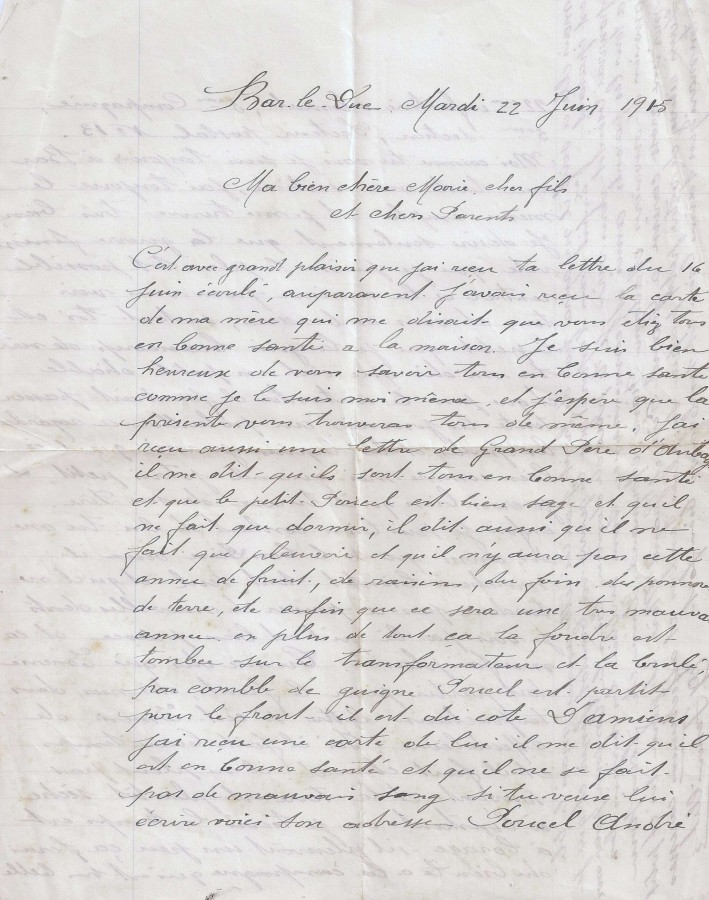 Bar-le-Duc, Mardi 22 Juin 1915
Ma bien chère Marie, cher fils
et chers Parents
C'est avec grand plaisir que jai reçu ta lettre du 16
Juin écoulé, auparavent j'avais reçu la carte
de ma mère qui me disait que vous etiez tous
en bonne santé a la maison. Je suis bien
heureux de vous savoir tous en bonne santé
comme je le suis moi même, et j'espere que la
présente vous trouveras tous de même, j'ai
reçu aussi une lettre de Grand Père
il me dit quils sont tous en bonne santé
et que le petit Poucel est bien sage et quil
ne fait que dormir, il dit aussi qu'il ne
fait que pleuvoir et quil n'y aura pas cette
année de fruit, de raisins, du foin des pommes
de terre, etc enfin que ce sera une tres mauva
année en plus de tout ça la foudre est
tombée sur le transformateur et la brulé,
par comble de guigne Poucel est partit
pour le front il est du coté D'amiens
jai reçu une carte de lui il me dit quil
est en bonne santé et quil ne se fait
pas de mauvais sang si tu veux lui
écrire voici son adresse Poucel André